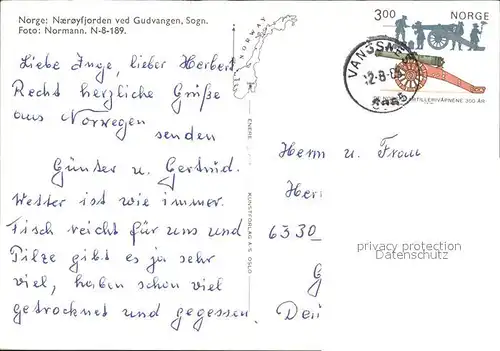 Norge: Nærøyfjorden ved Gudvangen, Sogn.
Foto: Normann. N-8-189.
NORWAY
3.00 NORGE
VANGSNES
ARTILLERIVÅPNENE 300 ÅR
Liebe Inge, lieber Herbert
Recht herzliche Grüße
aus Norwegen
senden
Günter u. Gertrud.
Wetter ist wie immer.
Fisch reicht für uns und
Pilze gibt es ja sehr
viel, haben schon viel
getrocknet und gegessen.
ENERE
KUNSTFORLAG A·S OSLO
Herrn u. Frau
Her
6330
G
privacy protection
Datenschutz